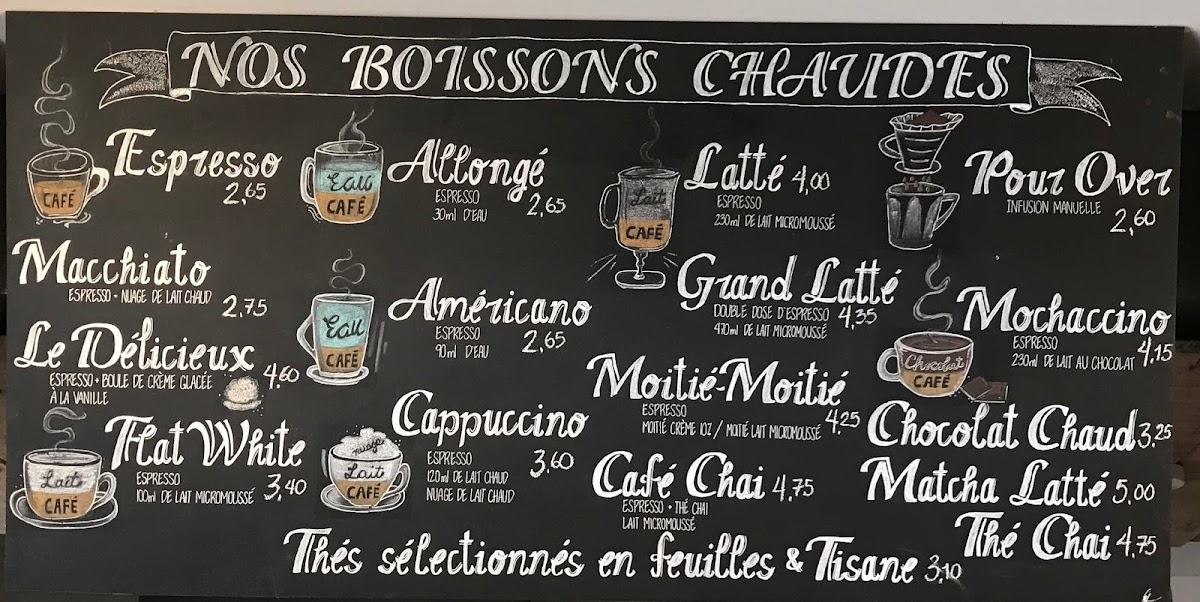 NOS BOISSONS CHAUDES
CAFÉ
Espresso
2,65
Macchiato
ESPRESSO + NUAGE DE LAIT CHAUD
2,75
Le Délicieux
ESPRESSO + BOULE DE CRÈME GLACÉE
À LA VANILLE
4,60
Lait
CAFÉ
Flat White
ESPRESSO
100ml DE LAIT MICROMOUSSÉ
3,40
Eau
CAFÉ
Allongé
ESPRESSO
30ml D'EAU
2,65
Eau
CAFÉ
Américano
ESPRESSO
90ml D'EAU
2,65
nuage
Lait
CAFÉ
Cappuccino
ESPRESSO
120ml DE LAIT CHAUD
NUAGE DE LAIT CHAUD
3,60
Lait
CAFÉ
Latté 4,00
ESPRESSO
230ml DE LAIT MICROMOUSSÉ
Grand Latté
DOUBLE DOSE D'ESPRESSO
470ml DE LAIT MICROMOUSSÉ
4,35
Moitié-Moitié
ESPRESSO
MOITIÉ CRÈME 10Z / MOITIÉ LAIT MICROMOUSSÉ
4,25
Café Chai 4,75
ESPRESSO + THÉ CHAI
LAIT MICROMOUSSÉ
Pour Over
INFUSION MANUELLE
2,60
Chocolat
CAFÉ
Mochaccino
ESPRESSO
230ml DE LAIT AU CHOCOLAT
4,15
Chocolat Chaud 3,25
Matcha Latté 5,00
Thé Chai 4,75
Thés sélectionnés en feuilles & Tisane 3,10